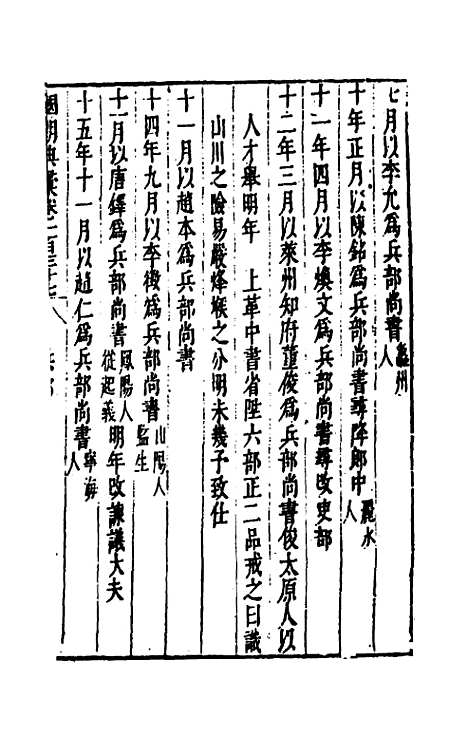 七月以李允為兵部尚書人
十年正月以陳銘為兵部尚書尋降郎中麗水人
十一年四月以李煥文為兵部尚書尋改吏部
十二年三月以萊州知府董俊為兵部尚書俊太原人以
人才舉明年 上革中書省陞六部正二品戒之曰識
山川之險易嚴烽堠之分明未幾予致仕
十一月以趙本為兵部尚書
十四年九月以李澂為兵部尚書山陽人監生
十一月以唐鐸為兵部尚書鳳陽人從起義明年改諫議大夫
十五年十一月以趙仁為兵部尚書寧海人
國朝典彙卷之一百三十七 兵部